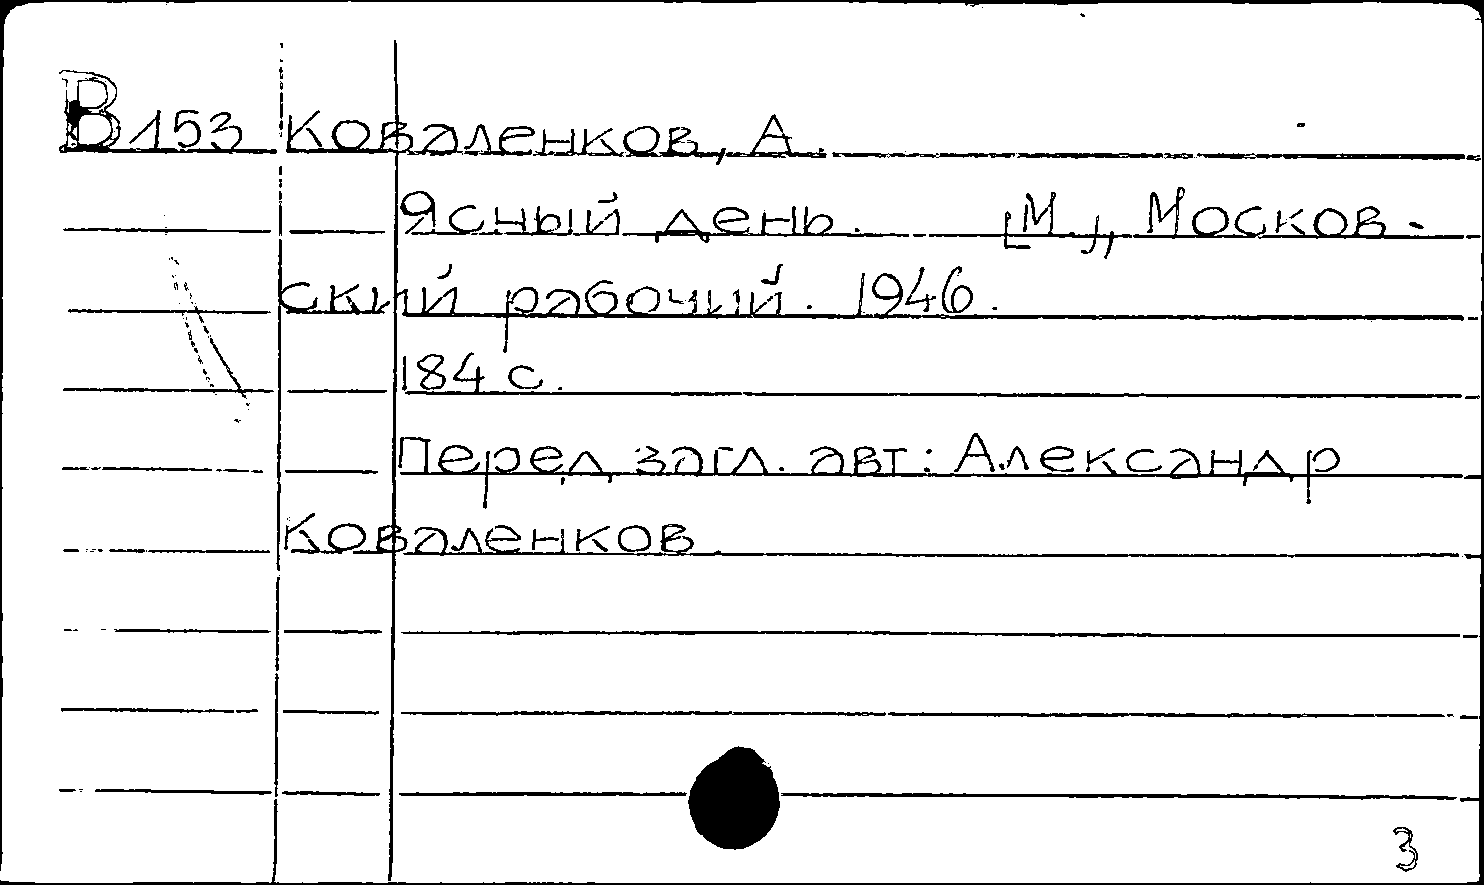 В153 Коваленков, А.
Ясный день. [М.], Москов-
ский рабочий. 1946.
184 с.
Перед загл. авт: Александр
Коваленков.
3